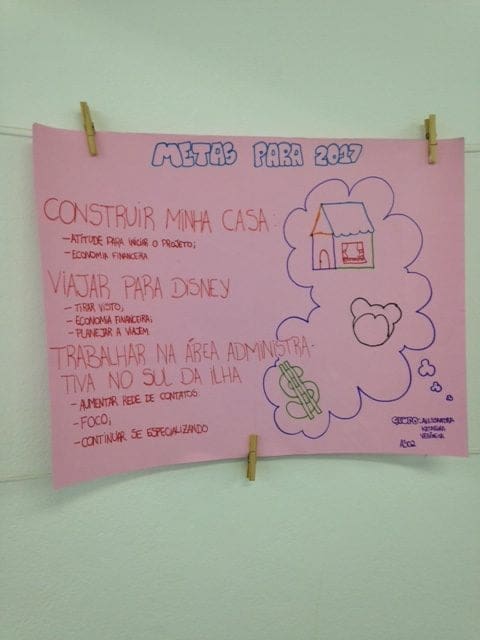 METAS PARA 2017
CONSTRUIR MINHA CASA:
- ATITUDE PARA INICIAR O PROJETO;
- ECONOMIA FINANCEIRA
VIAJAR PARA DISNEY
- TIRAR VISTO;
- ECONOMIA FINANCEIRA;
- PLANEJAR A VIAJEM.
TRABALHAR NA ÁREA ADMINISTRA-
TIVA NO SUL DA ILHA
- AUMENTAR REDE DE CONTATOS.
- FOCO;
- CONTINUAR SE ESPECIALIZANDO
GRUPO: